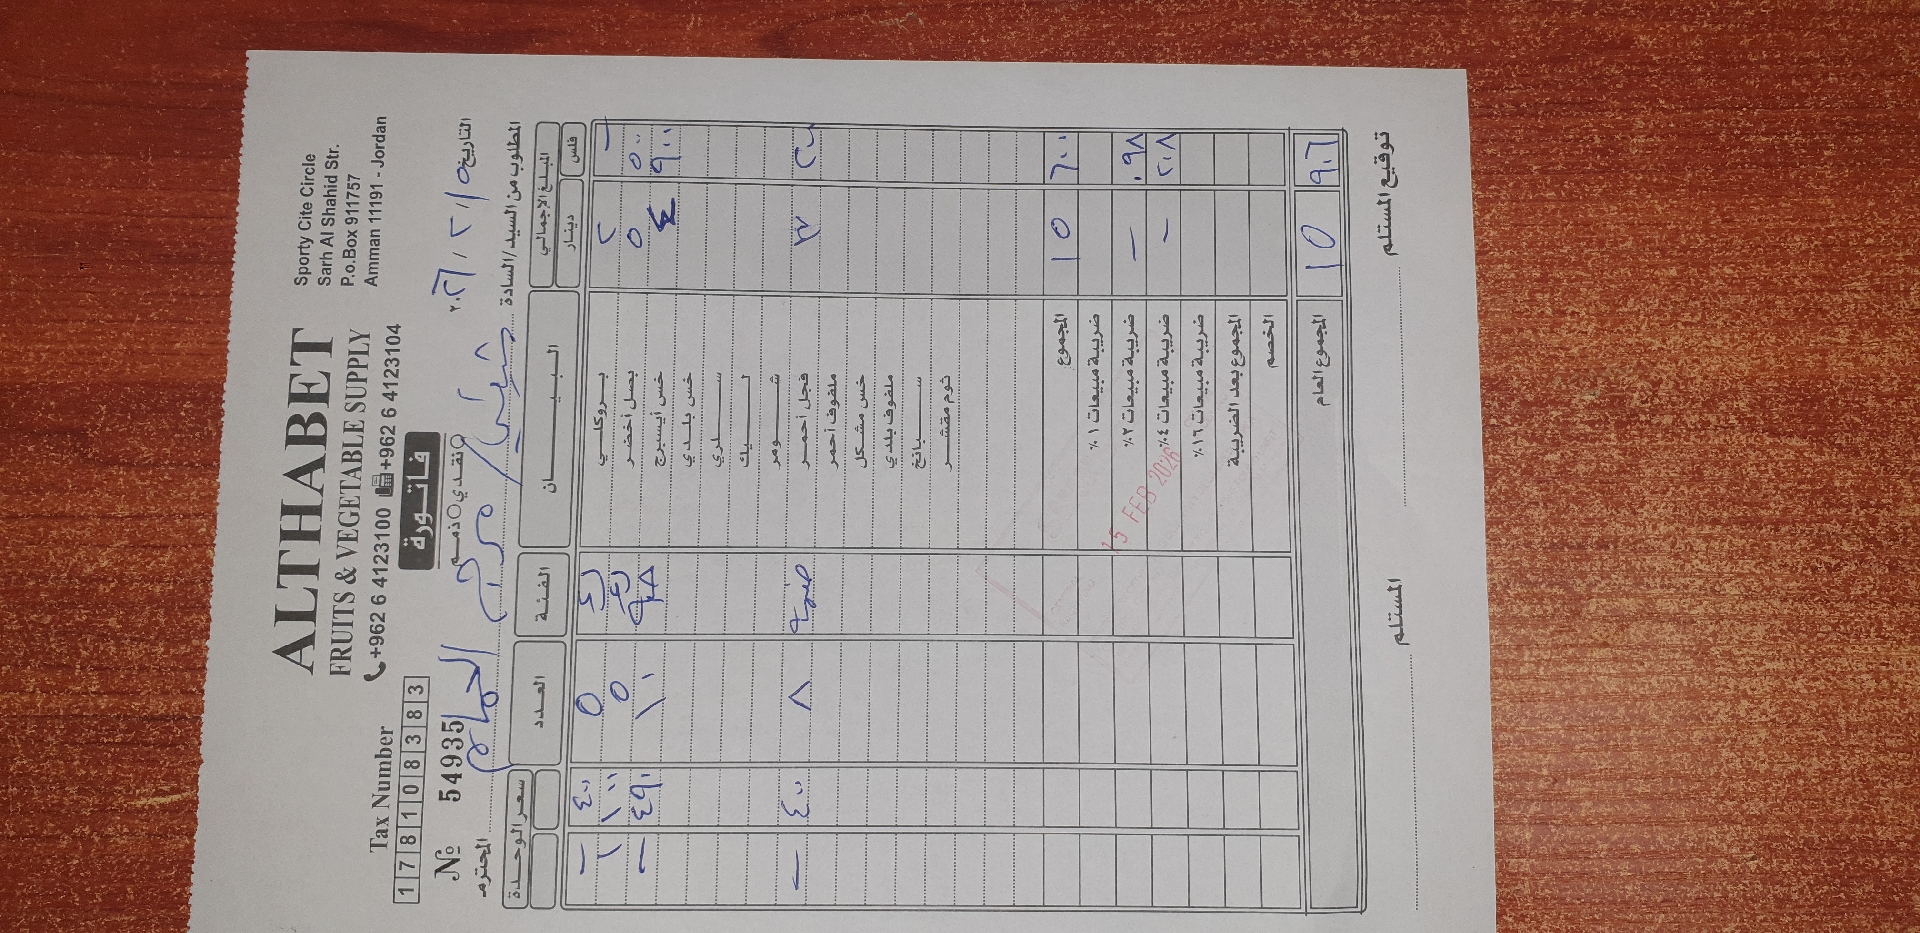 ALTHABET
FRUITS & VEGETABLE SUPPLY
+962 6 4123100 +962 6 4123104
Sporty Cite Circle
Sarh Al Shahid Str.
P.o.Box 911757
Amman 11191 - Jordan
Tax Number
1 7 8 1 0 8 3 8 3
فاتورة
نقدي ذمم
№ 54935
التاريخ ١٥ / ٢ / ٢٠٢٦
المطلوب من السيد / السادة
المحترم
المبلغ الإجمالي البيــــــان الفئة العدد سعر الوحدة
فلس دينار
- ٢ بروكلي ٥ ٤٠٠ -
٥٠٠ ٥ بصل أخضر ٥ ١٠٠ ١
٩٠٠ ٤ خس أيسبرج ١٠ ٤٩٠ -
خس بلدي
سلري
ليك
شومر
٢٠٠ ٣ فجل أحمر ضمة ٨ ٤٠٠ -
ملفوف أحمر
خس مشكل
ملفوف بلدي
سبانخ
ثوم مقشر
٦٠٠ ١٥ المجموع
ضريبة مبيعات ١٪
٠٩٨ - ضريبة مبيعات ٢٪
٢٠٨ - ضريبة مبيعات ٤٪
ضريبة مبيعات ١٦٪
المجموع بعد الضريبة
الخصم
٩٠٦ ١٥ المجموع العام
15 FEB 2026
توقيع المستلم
المستلم